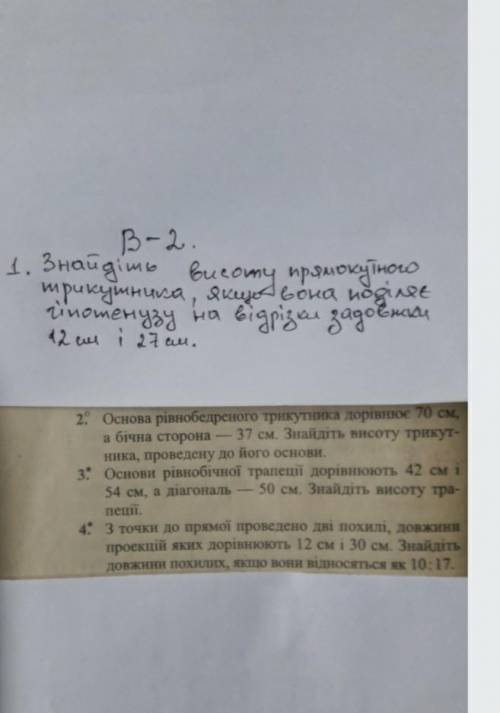 В-2.
1. Знайдіть висоту прямокутного
трикутника, якщо вона поділяє
гіпотенузу на відрізки задовжки
12 см і 27 см.
2.° Основа рівнобедреного трикутника дорівнює 70 см,
а бічна сторона — 37 см. Знайдіть висоту трикут-
ника, проведену до його основи.
3.• Основи рівнобічної трапеції дорівнюють 42 см і
54 см, а діагональ — 50 см. Знайдіть висоту тра-
пеції.
4.• З точки до прямої проведено дві похилі, довжини
проекцій яких дорівнюють 12 см і 30 см. Знайдіть
довжини похилих, якщо вони відносяться як 10:17.